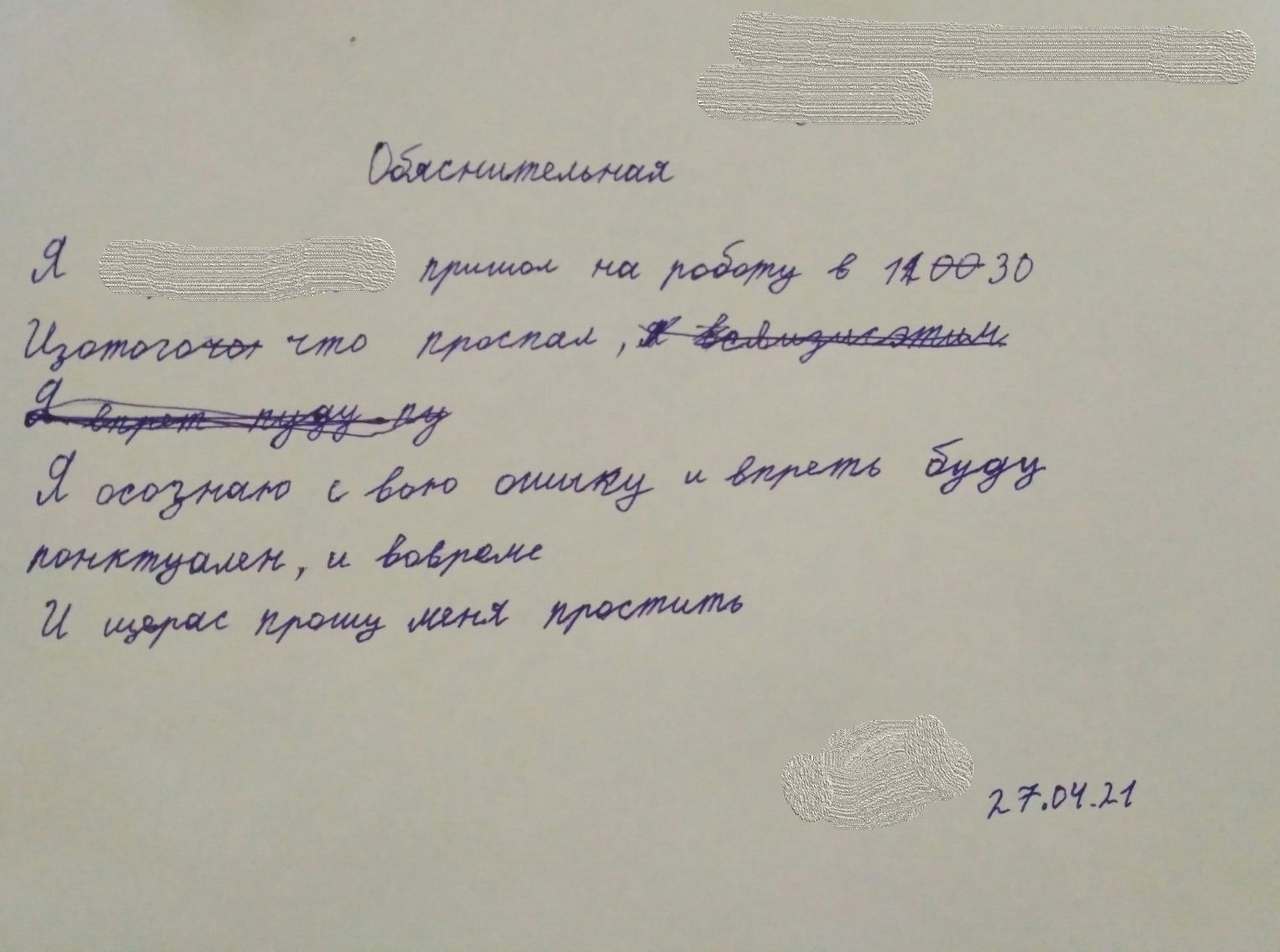 Обяснительная
Я пришол на роботу в 11 00 30
Изотогочог что проспал, я всвязисэтим
Я впрет пуду пу
Я осознаю с вою ошыку и впреть буду
понктуален, и вовреме
И щерас прошу меня простить
27.04.21